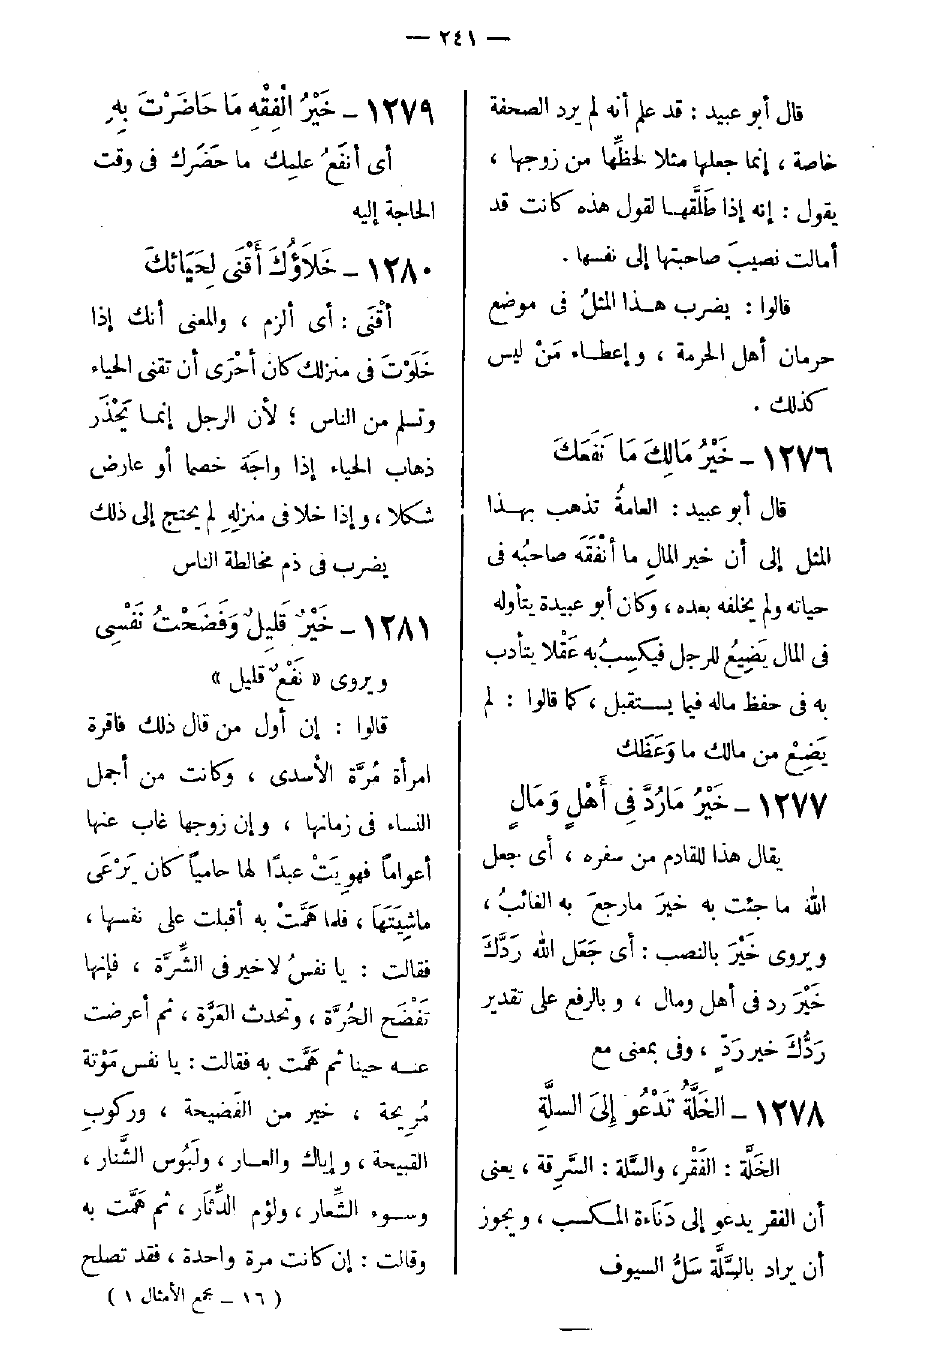 — ٢٤١ —
قال أبو عبيد : قد علم أنه لم يرد الصحفة
خاصة ، إنما جعلها مثلا لحظِّها من زوجها ،
يقول : إنه إذا طَلَّقهـا لقول هذه كانت قد
أمالت نصيبَ صاحبتها إلى نفسها .
قالوا : يضرب هـذا المثلُ فى موضع
حرمان أهل الحرمة ، وإعطاء مَنْ ليس
كذلك .
١٢٧٦ – خَيْرُ مَالِكَ مَا نَفَعَكَ
قال أبو عبيد : العامةُ تذهب بهـذا
المثل إلى أن خير المالِ ما أنْفَقَه صاحبُه فى
حياته ولم يخلفه بعده ، وكان أبو عبيدة يتأوله
فى المال يَضِيعُ للرجل فيكسِبُ به عَقْلا يتأدب
به فى حفظ ماله فيما يسـتقبل ، كما قالوا : لم
يَضِعْ من مالك ما وَعَظَك
١٢٧٧ – خَيْرُ مَارُدَّ فِى أَهْلٍ وَمَالٍ
يقال هذا للقادم من سفره ، أى جعل
الله ما جئت به خيرَ مارجعَ به الغائبُ ،
ويروى خَيْرَ بالنصب : أى جَعَل الله رَدَّكَ
خَيْرَ رد فى أهل ومال ، وبالرفع على تقدير
رَدُّكَ خير رَدّ ، وفى بمعنى مع
١٢٧٨ – الخَلَّةُ تَدْعُو إِلَى السلَّةِ
الخَلَّة : الفَقْر ، والسَّلة : السَّرِقة ، يعنى
أن الفقر يدعو إلى دَنَاءة المـكسب ، ويجوز
أن يراد بالسَّلَّة سَلُّ السيوف
١٢٧٩ – خَيْرُ الْفِقْهِ مَا حَاضَرْتَ بِهِ
أى أنفَعُ علمِك ما حَضَرك فى وقت
الحاجة إليه
١٢٨٠ – خَلَاؤُكَ أَقْنَى لِحَيَائِكَ
أقْنَى : أى ألزم ، والمعنى أنك إذا
خَلَوْتَ فى منزلك كان أحْرَى أن تقنى الحياء
وتسلم من الناس ؛ لأن الرجل إنمـا يَحْذَر
ذهاب الحياء إذا واجَهَ خصما أو عارض
شكلا ، وإذا خلا فى منزلِهِ لم يحتج إلى ذلك
يضرب فى ذم مخالطة الناس
١٢٨١ – خَيْرٌ قَلِيلٌ وَفَضَحْتُ نَفْسِى
ويروى « نَفْعٌ قليل »
قالوا : إن أول من قال ذلك فاقرة
امرأة مُرَّة الأسدى ، وكانت من أجمل
النساء فى زمانها ، وإن زوجها غاب عنها
أعواماً فهوِيَتْ عبدًا لها حامياً كان يَرْعَى
ماشِيَتَهَا ، فلما هَمَّتْ به أقبلت على نفسها ،
فقالت : يا نفسُ لاخير فى الشِّرَّة ، فإنها
تَفْضَح الحُرَّة ، وتحدث العَرَّة ، ثم أعرضت
عنـه حينا ثم هَمَّت به فقالت : يا نفس مَوْتة
مُرِيحة ، خير من الفَضيحة ، وركوبِ
القبيحة ، وإياك والعـار ، ولَبُوس الشَّنار ،
وسـوء الشِّعار ، ولؤم الدِّثَار ، ثم هَمَّت به
وقالت : إن كانت مرة واحدة ، فقد تصلح
( ١٦ – مجمع الأمثال ١ )